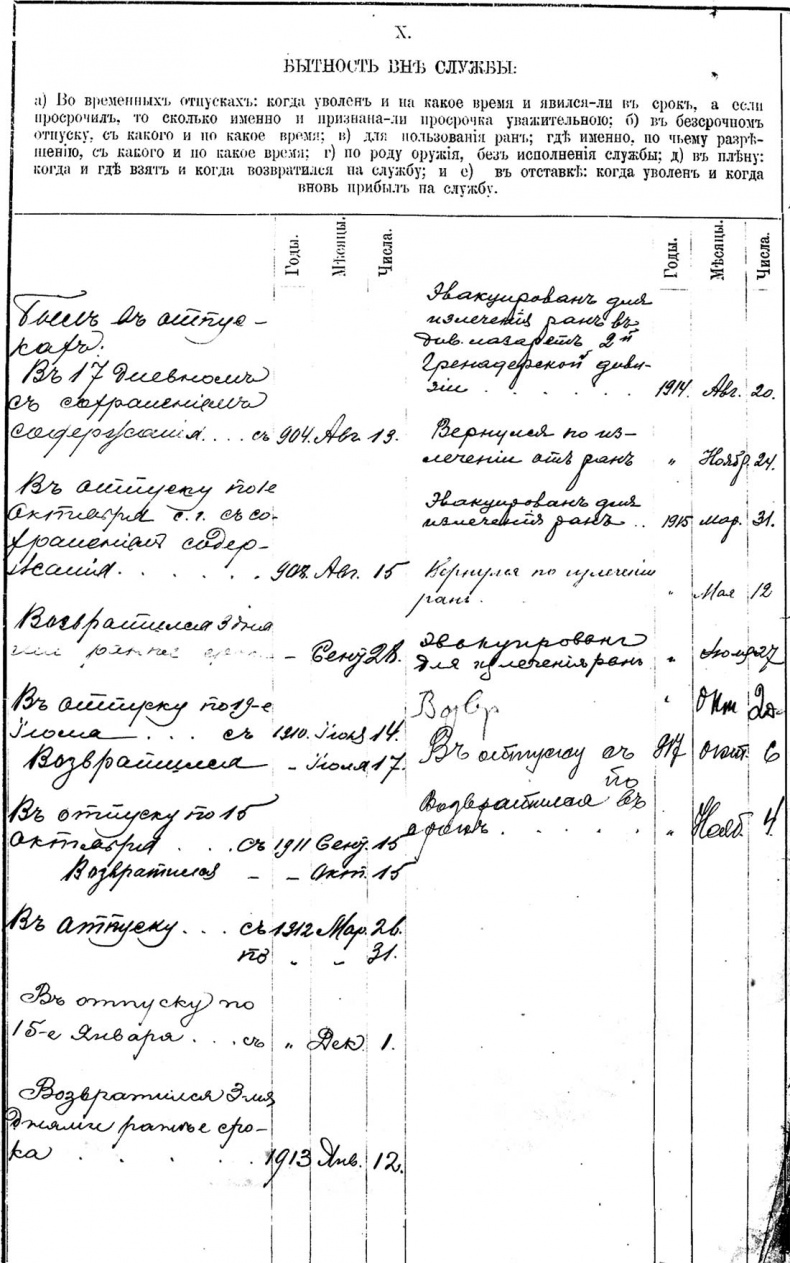 X.
БЫТНОСТЬ ВНѢ СЛУЖБЫ:
а) Во временныхъ отпускахъ: когда уволенъ и на какое время и явился-ли въ срокъ, а если
просрочилъ, то сколько именно и признана-ли просрочка уважительною; б) въ безсрочномъ
отпуску, съ какого и по какое время; в) для пользованія ранъ; гдѣ именно, по чьему разрѣ-
шенію, съ какого и по какое время; г) по роду оружія, безъ исполненія службы; д) въ плѣну:
когда и гдѣ взятъ и когда возвратился на службу; и е) въ отставкѣ: когда уволенъ и когда
вновь прибылъ на службу.
Годы. Мѣсяцы. Числа.
Былъ въ отпус-
кахъ:
Въ 17 дневномъ
съ сохраненіемъ
содержанія.... съ 904. Авг. 13.
Въ отпуску по 1е
Октября с. г. съ со-
храненіемъ содер-
жанія...... Авг. 15
Возвратился 3 дня
ми ранѣе – Сент. 28.
Въ отпуску по 19-е
Іюля ... съ 1910. Іюня 14.
Возвратился – Іюля 17.
Въ отпуску по 15
Октября ... съ 1911 Сент. 15
Возвратился – – Окт. 15
Въ отпуску... съ 1912 Мар. 26.
по „ „ 31.
Въ отпуску по
15-е Января ... съ „ Дек. 1.
Возвратился 3мя
днями ранѣе сро-
ка ...... 1913 Янв. 12.
Годы. Мѣсяцы. Числа.
Эвакуированъ для
излеченія ранъ въ
див. лазаретъ 2й
Гренадерской диви-
зіи ...... 1914. Авг. 20.
Вернулся по из-
леченіи отъ ранъ „ Ноябр. 24.
Эвакуированъ для
излеченія ранъ .. 1915 Мар. 31.
Вернулся по излеченіи
ранъ. „ Мая 12
Эвакуированъ
для излеченія ранъ „ 27
Возвр „ Окт
Въ отпуску съ 917 Окт. 6
по
Возвратился въ
срокъ..... „ Нояб. 4.